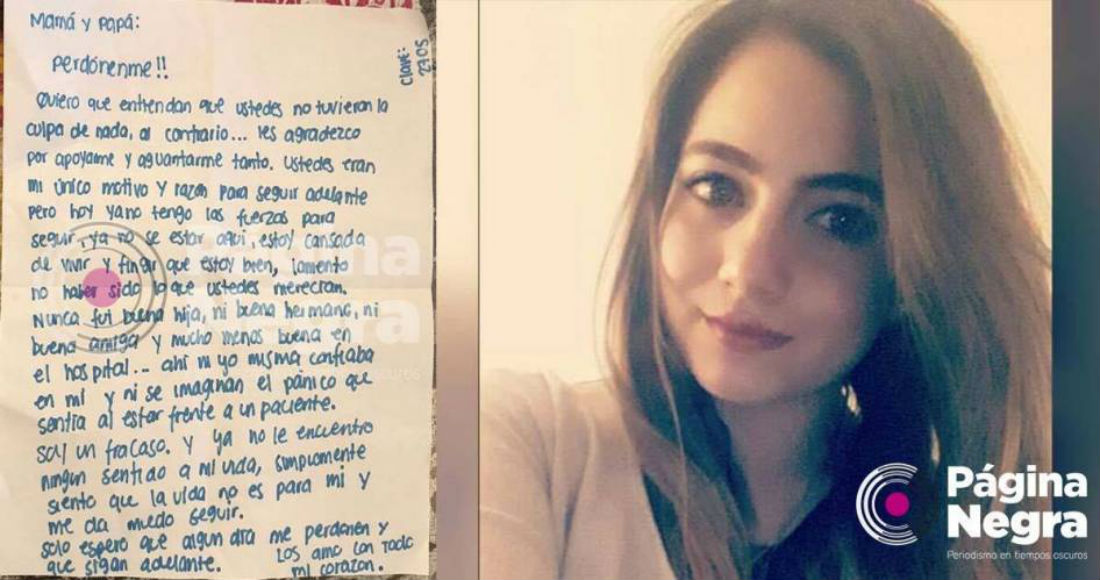 Mamá y Papá:
Perdónenme!!
Clave:
2705
Quiero que entiendan que ustedes no tuvieron la
culpa de nada, al contrario... les agradezco
por apoyarme y aguantarme tanto. Ustedes eran
mi único motivo y razón para seguir adelante
pero hoy ya no tengo las fuerzas para
seguir, ya no se estar aquí, estoy cansada
de vivir y fingir que estoy bien, lamento
no haber sido lo que ustedes merecían.
Nunca fui buena hija, ni buena hermana, ni
buena amiga y mucho menos buena en
el hospital... ahí ni yo misma confiaba
en mi y ni se imaginan el pánico que
sentía al estar frente a un paciente.
soy un fracaso. Y ya no le encuentro
ningún sentido a mi vida, simplemente
siento que la vida no es para mi y
me da miedo seguir.
solo espero que algun día me perdonen y
que sigan adelante.
Los amo con todo
mi corazón.
Página
Negra
Página
Negra
Periodismo en tiempos oscuros